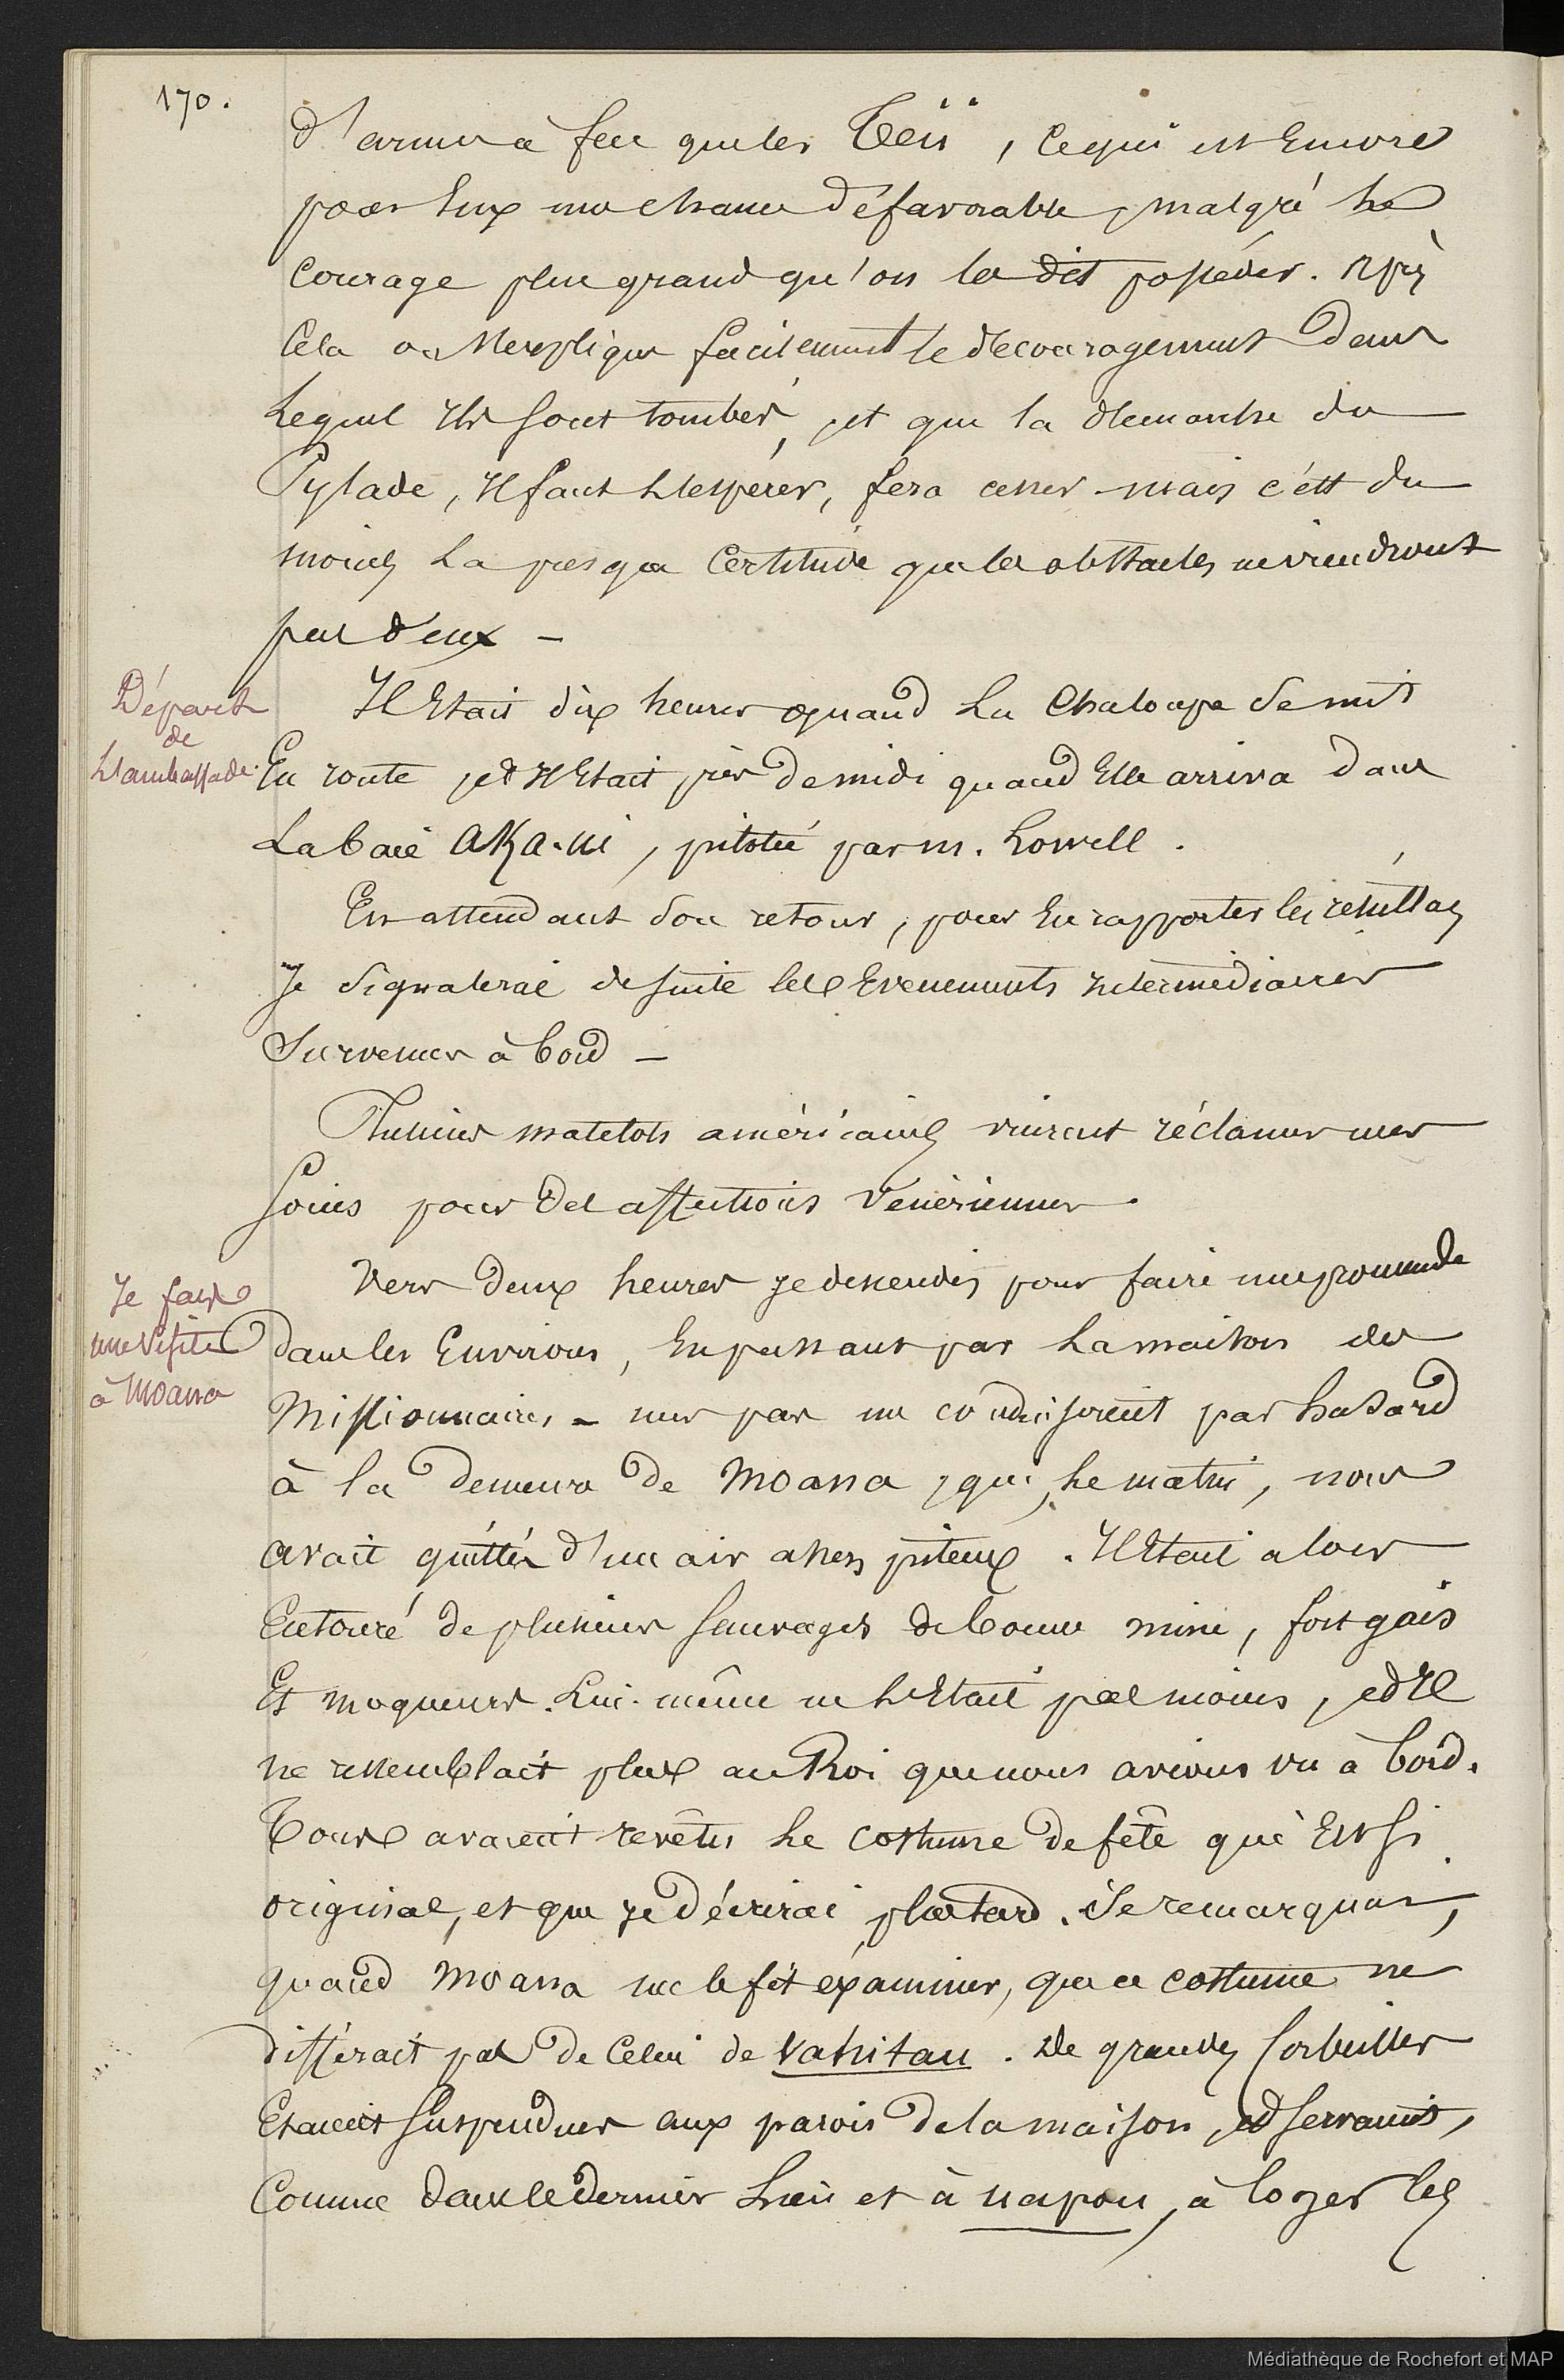 170.
d'armes à feu que les Teïi, ce qui est Encore
pour Eux une chance défavorable, malgré le
Courage plus grand qu'on les dit posséder. Après
Cela on s'explique facilement le découragement dans
Lequel ils sont tombés, et que la démarche du
Pylade, il faut L'espérer, fera cesser - mais c'est du
moins La presque Certitude que les obstacles ne viendront
pas d'eux -
Départ
de
L'ambassade.
Il Etait dix heures quand La Chaloupe se mit
En route et il Etait près de midi quand Elle arriva dans
La baie Aka-ui, pilotée par M. Lowell.
En attendant son retour, pour En rapporter les résultats
Je signalerai de suite les Evenements intermédiaires
Survenus à bord -
Plusieurs matelots américains vinrent réclamer mes
Soins pour des affections vénériennes.
Je fais
une visite
à Moana
Vers deux heures je descendis pour faire une promenade
dans les Environs, En passant par La maison des
Missionnaires - mes pas me conduisirent par hasard
à la demeure de Moana, qui, le matin, nous
avait quittés d'un air assez piteux. Il Etait alors
Entouré de plusieurs sauvages de bonne mine, fort gais
Et moqueurs. Lui-même ne L'Etait pas moins, et Il
ne ressemblait plus au Roi que nous avions vu à bord.
Tous avaient revêtu Le costume de fête qui Est si
original, et que je décrirai plus tard. Je remarquai,
quand Moana me le fit éxaminer, que ce costume ne
différait pas de Celui de Vahitau. De grandes Corbeilles
Etaient suspendues aux parois de la maison, et servaient,
Comme dans le dernier Lieu et à uapou, à loger les
Médiathèque de Rochefort et MAP